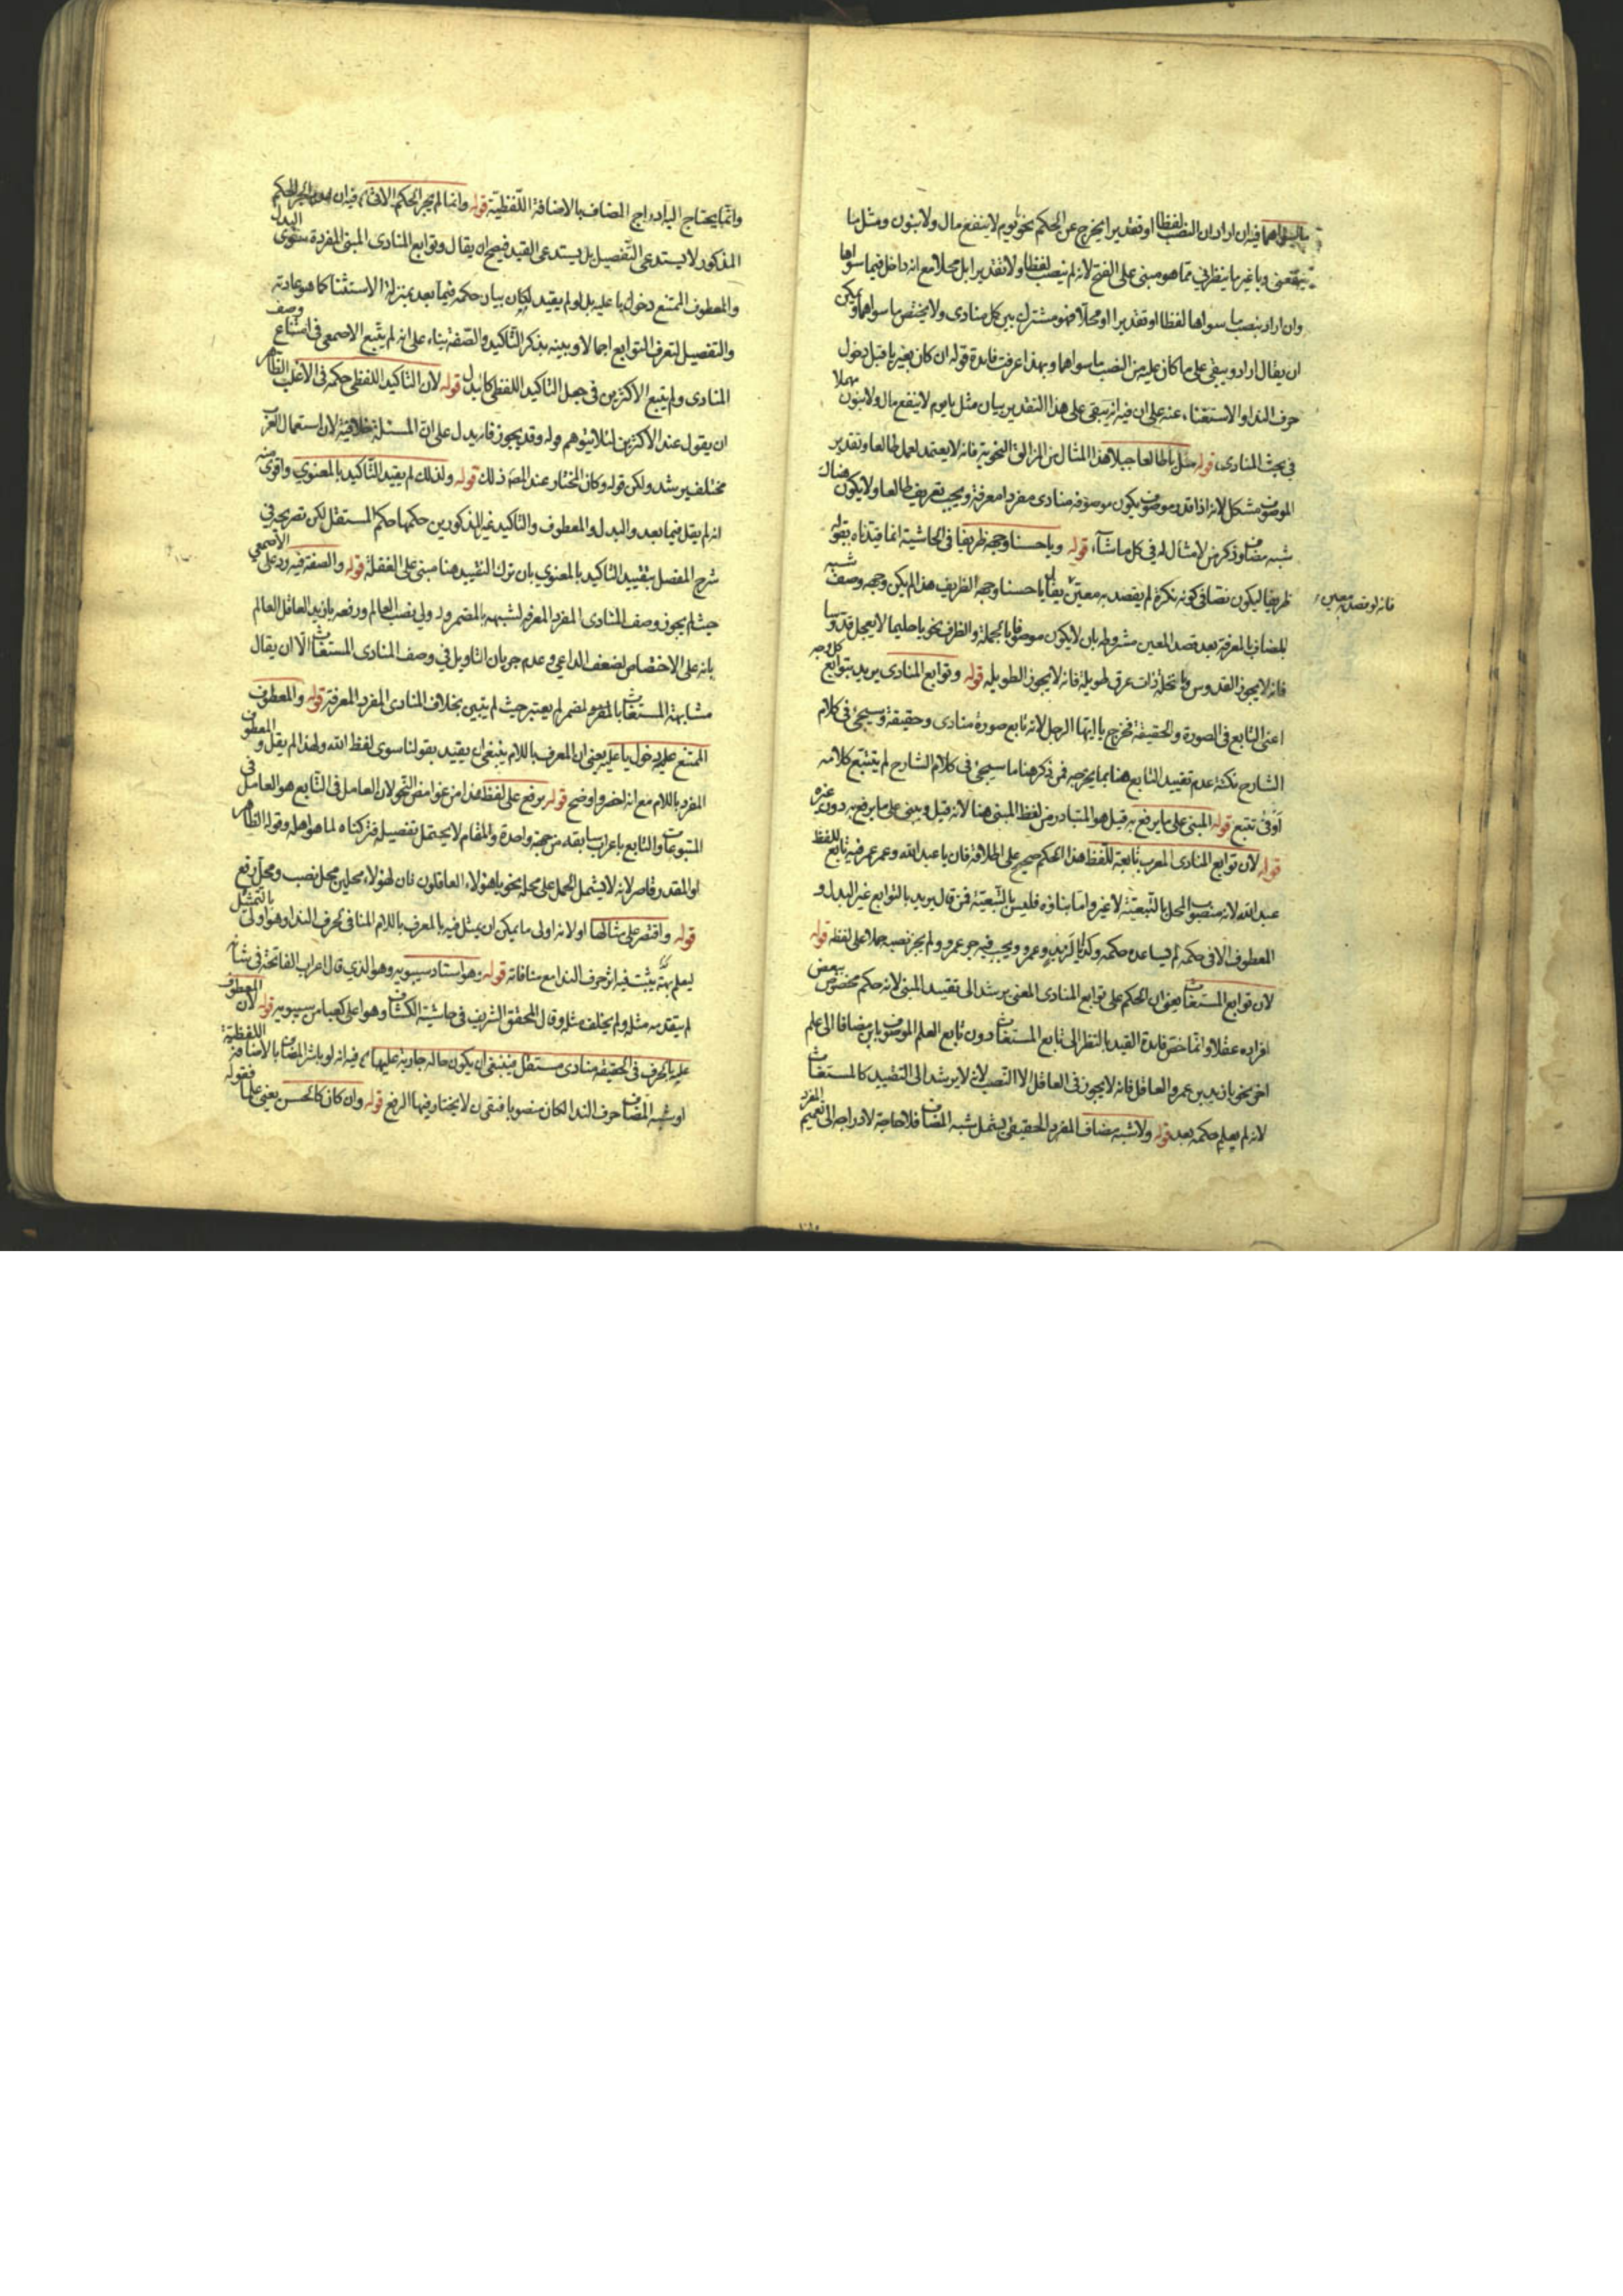 ما سواهما فيه ان اراد ان النصب لفظا او تقديرا يخرج عن الحكم نحو يوم لا ينفع مال ولا بنون ومثل يا
وبا غير ما ينظر اني مما هو مبنى على الفتح لانه لم ينصب لفظا ولا تقديرا بل محلا مع انه داخل فيما سواها
وان اراد ينصب ما سواها لفظا او تقديرا او محلا فهو مشترك بين كل منادى ولا يختص ما سواهما ويمكن
ان يقال اراد ويبقى على ما كان عليه من النصب ما سواهما وبهذا عرفت فايدة قوله ان كان بغير يا قبل دخول
حرف النداء والاستغناء عنه على ان فيه انه يبقى على هذا التقدير بيان مثل يا يوم لا ينفع مال ولا بنون مهملا
في بحث المنادى، قوله مثل يا طالعا جبلا هذا المثال من المزالق النحوية فانه لا يعتمد لعمل طالعا وتقدير
الموصوف مشكل لانه اذا قدر موصوف يكون موصوفه منادى مفردا معرفة ويجب تعريف طالعا ولا يكون هناك
شبه مضاف وذكر من لا مثال له في كل ما شاء، قوله ويا حسنا وجهه ظريفا في الحاشية انما قيدناه بقوله
ظريفا ليكون نصا في كونه نكرة لم يقصد به معين يقال يا حسنا وجهه الظريف هذا لم يكن وجهه وصف شبه
فانه لو قصد به معين
المضاف بالمعرفة بعد قصد المعين مشروط بان لا يكون موصوفا بالجملة والظرف نحو يا حليما لا يعجل قدوسا
فانه لا يجوز القدوس ويا نخلة ذات عرق طويلة فانه لا يجوز الطويلة قوله وتوابع المنادى يريد بتوابع كل وجه
اعنى التابع في الصورة والحقيقة فخرج يا ايها الرجل لانه تابع صورة منادى وحقيقة وسيجئ في كلام
الشارح نكتة عدم تقييد التابع هنا بما يخرجه فمن ذكر هنا ما سيجئ في كلام الشارح لم يتتبع كلامه
اوفى تتبع قوله المبنى على ما يرفع به قيل هو المتبادر من لفظ المبنى هنا لانه قيل ويبنى على ما يرفع به دون غيره
قوله لان توابع المنادى المعرب تابعة للفظ هذا الحكم صحيح على اطلاقه فان يا عبد الله وعمر عمر فيه تابع للفظ
عبد الله لانه منصوب المحل بالتبعية لا غير واما بناؤه فليس بالتبعية فمن قال يريد بالتوابع غير البدل و
المعطوف الا في حكمه لم يساعده حكمه وكذا يا لزيد وعمرو ويجب فيه جر عمرو ولم يجز نصبه حملا على لفظه قوله
لان توابع المستغاث يعنى ان الحكم على توابع المنادى المعنى يرشد الى تقييد المبنى لانه حكم مخصوص ببعض
افراده عقلا وانما خص فايدة القيد بالنظر الى تابع المستغاث دون تابع العلم الموصوف بابن مضافا الى علم
اخر نحو يا زيد بن عمرو العاقل فانه لا يجوز في العاقل الا النصب لانه لا يرشد الى التقييد كالمستغاث
لانه لم يعلم حكمه بعد قوله ولا شبه مضاف المفرد الحقيقى يشمل شبه المضاف فلا حاجة لادراجه الى تعميم المفرد
وانما يحتاج اليه ادراج المضاف بالاضافة اللفظية قوله وانما لم يجر الحكم الا في فيه ان الحكم
المذكور لا يستدعى التفصيل بل يستدعى القيد فيصح ان يقال وتوابع المنادى المبنى المفردة سوى البدل
والمعطوف الممتنع دخول يا عليه بل لو لم يقيد لكان بيان حكمه فيما بعد بمنزلة الاستثنا كما هو عادته
والتفصيل لتعرف التوابع اجمالا وبينه بذكر التاكيد والصفة بناء على انه لم يتبع الاصمعى في امتناع وصف
المنادى ولم يتبع الاكثرين في جعل التاكيد اللفظى كالبدل قوله لان التاكيد اللفظى حكمه في الاغلب الظاهر
ان يقول عند الاكثرين لئلا يتوهم وله وقد يجوز فانه يدل على ان المسئلة خلافية لان استعمال العرب
مختلف يرشد ولكن قوله وكان المختار عند المص ذلك قوله ولذلك لم يقيد التاكيد بالمعنوي واقوى منه
انه لم يقل فيما بعد والبدل والمعطوف والتاكيد غير المذكورين حكمها حكم المستقل لكن تصريحه في
شرح المفصل بتقييد التاكيد بالمعنوي بان ترك التقييد هنا مبنى على الغفلة قوله والصفة فيه رد على الاصمعي
حيث لم يجوز وصف المنادى المفرد المعرفة لشبهه بالمضمر واول نصب العالم ورفعه يا زيد العاقل العالم
بانه على الاختصاص لضعف الداعي وعدم جريان التاويل في وصف المنادى المستغاث الا ان يقال
مشابهة المستغاث بالمفرد لمضمر لم يعتبر حيث لم يتبين بخلاف المنادى المفرد المعرفة قوله والمعطوف
الممتنع عليه دخول يا عليه يعنى ان المعرف باللام ينبغي ان يقيد بقولنا سوى لفظ الله ولهذا لم يقل والمعطوف
المفرد باللام مع انه اخصر واوضح قوله يرفع على لفظه هذا من غوامض النحو لان العامل في التابع هو العامل في
المتبوعات والتابع باعراب سابقه من جهة واحدة والمقام لا يحتمل تفصيله فتركناه لما هو اهله وقوله الظاهر
او المقدر قاصر لانه لا يشمل الحمل على محله نحو يا هؤلاء العاقلون فان لهؤلاء محلين محل نصب ومحل رفع
قوله واقتصر على مثالها اولا لانه اولى ما يمكن ان يمثل فيه بالمعرف باللام المنافى لحرف النداء وهو اولى بالتمثيل
ليعلم به انه يثبت فيه اثر حرف الندا مع منافاته قوله هو استاد سيبويه وهو الذي قال اعراب الفاتحة في شانه
لم يتقدمه مثله ولم يخلف مثله وقال المحقق الشريف في حاشية الكشاف وهو اعلى كعبا من سيبويه قوله لان المعطوف
عليه بالحرف في الحقيقة منادى مستقل فينبغي ان يكون حاله جارية عليها فيه انه لو باشر المضاف بالاضافة اللفظية
او شبه المضاف حرف الندا لكان منصوبا فينبغي ان لا يختار فيها الرفع قوله وان كان كالحسن يعنى علما فقوله